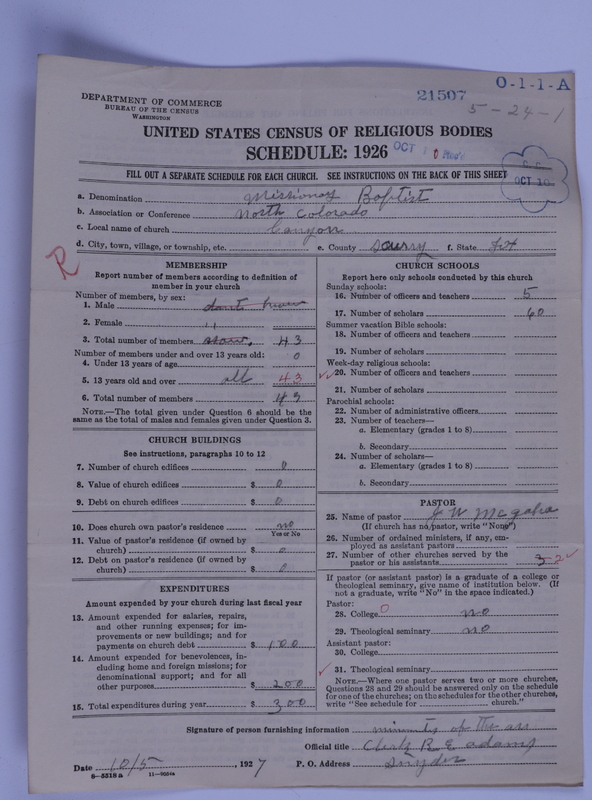 21507
O-1-1-A
5-24-1
DEPARTMENT OF COMMERCE
BUREAU OF THE CENSUS
WASHINGTON
UNITED STATES CENSUS OF RELIGIOUS BODIES
SCHEDULE: 1926
OCT
OCT 10
FILL OUT A SEPARATE SCHEDULE FOR EACH CHURCH. SEE INSTRUCTIONS ON THE BACK OF THIS SHEET
a. Denomination Missionary Baptist
b. Association or Conference North Colorado
c. Local name of church Canyon
d. City, town, village, or township, etc. e. County Scurry f. State Tex
R
MEMBERSHIP
Report number of members according to definition of
member in your church
Number of members, by sex:
1. Male dont know
2. Female "
3. Total number of members 43
Number of members under and over 13 years old:
4. Under 13 years of age 0
5. 13 years old and over all 43
6. Total number of members 43
NOTE.—The total given under Question 6 should be the
same as the total of males and females given under Question 3.
CHURCH BUILDINGS
See instructions, paragraphs 10 to 12
7. Number of church edifices 0
8. Value of church edifices $ 0
9. Debt on church edifices $ 0
10. Does church own pastor's residence no
Yes or No
11. Value of pastor's residence (if owned by
church) $ 0
12. Debt on pastor's residence (if owned by
church) $ 0
EXPENDITURES
Amount expended by your church during last fiscal year
13. Amount expended for salaries, repairs,
and other running expenses; for im-
provements or new buildings; and for
payments on church debt $ 100
14. Amount expended for benevolences, in-
cluding home and foreign missions; for
denominational support; and for all
other purposes $ 200
15. Total expenditures during year $ 300
CHURCH SCHOOLS
Report here only schools conducted by this church
Sunday schools:
16. Number of officers and teachers 5
17. Number of scholars 60
Summer vacation Bible schools:
18. Number of officers and teachers
19. Number of scholars
Week-day religious schools:
20. Number of officers and teachers
21. Number of scholars
Parochial schools:
22. Number of administrative officers
23. Number of teachers—
a. Elementary (grades 1 to 8)
b. Secondary
24. Number of scholars—
a. Elementary (grades 1 to 8)
b. Secondary
PASTOR
25. Name of pastor J W McGaha
(If church has no pastor, write "None")
26. Number of ordained ministers, if any, em-
ployed as assistant pastors
27. Number of other churches served by the
pastor or his assistants 3 2
If pastor (or assistant pastor) is a graduate of a college or
theological seminary, give name of institution below. (If
not a graduate, write "No" in the space indicated.)
Pastor:
28. College 0 no
29. Theological seminary no
Assistant pastor:
30. College
31. Theological seminary
NOTE.—Where one pastor serves two or more churches,
Questions 28 and 29 should be answered only on the schedule
for one of the churches; on the schedules for the other churches,
write "See schedule for church."
Signature of person furnishing information minuts of the
Official title Clerk R E adams
Date 10/5, 1927 P. O. Address Snyder
6-5518 a 11-9034a